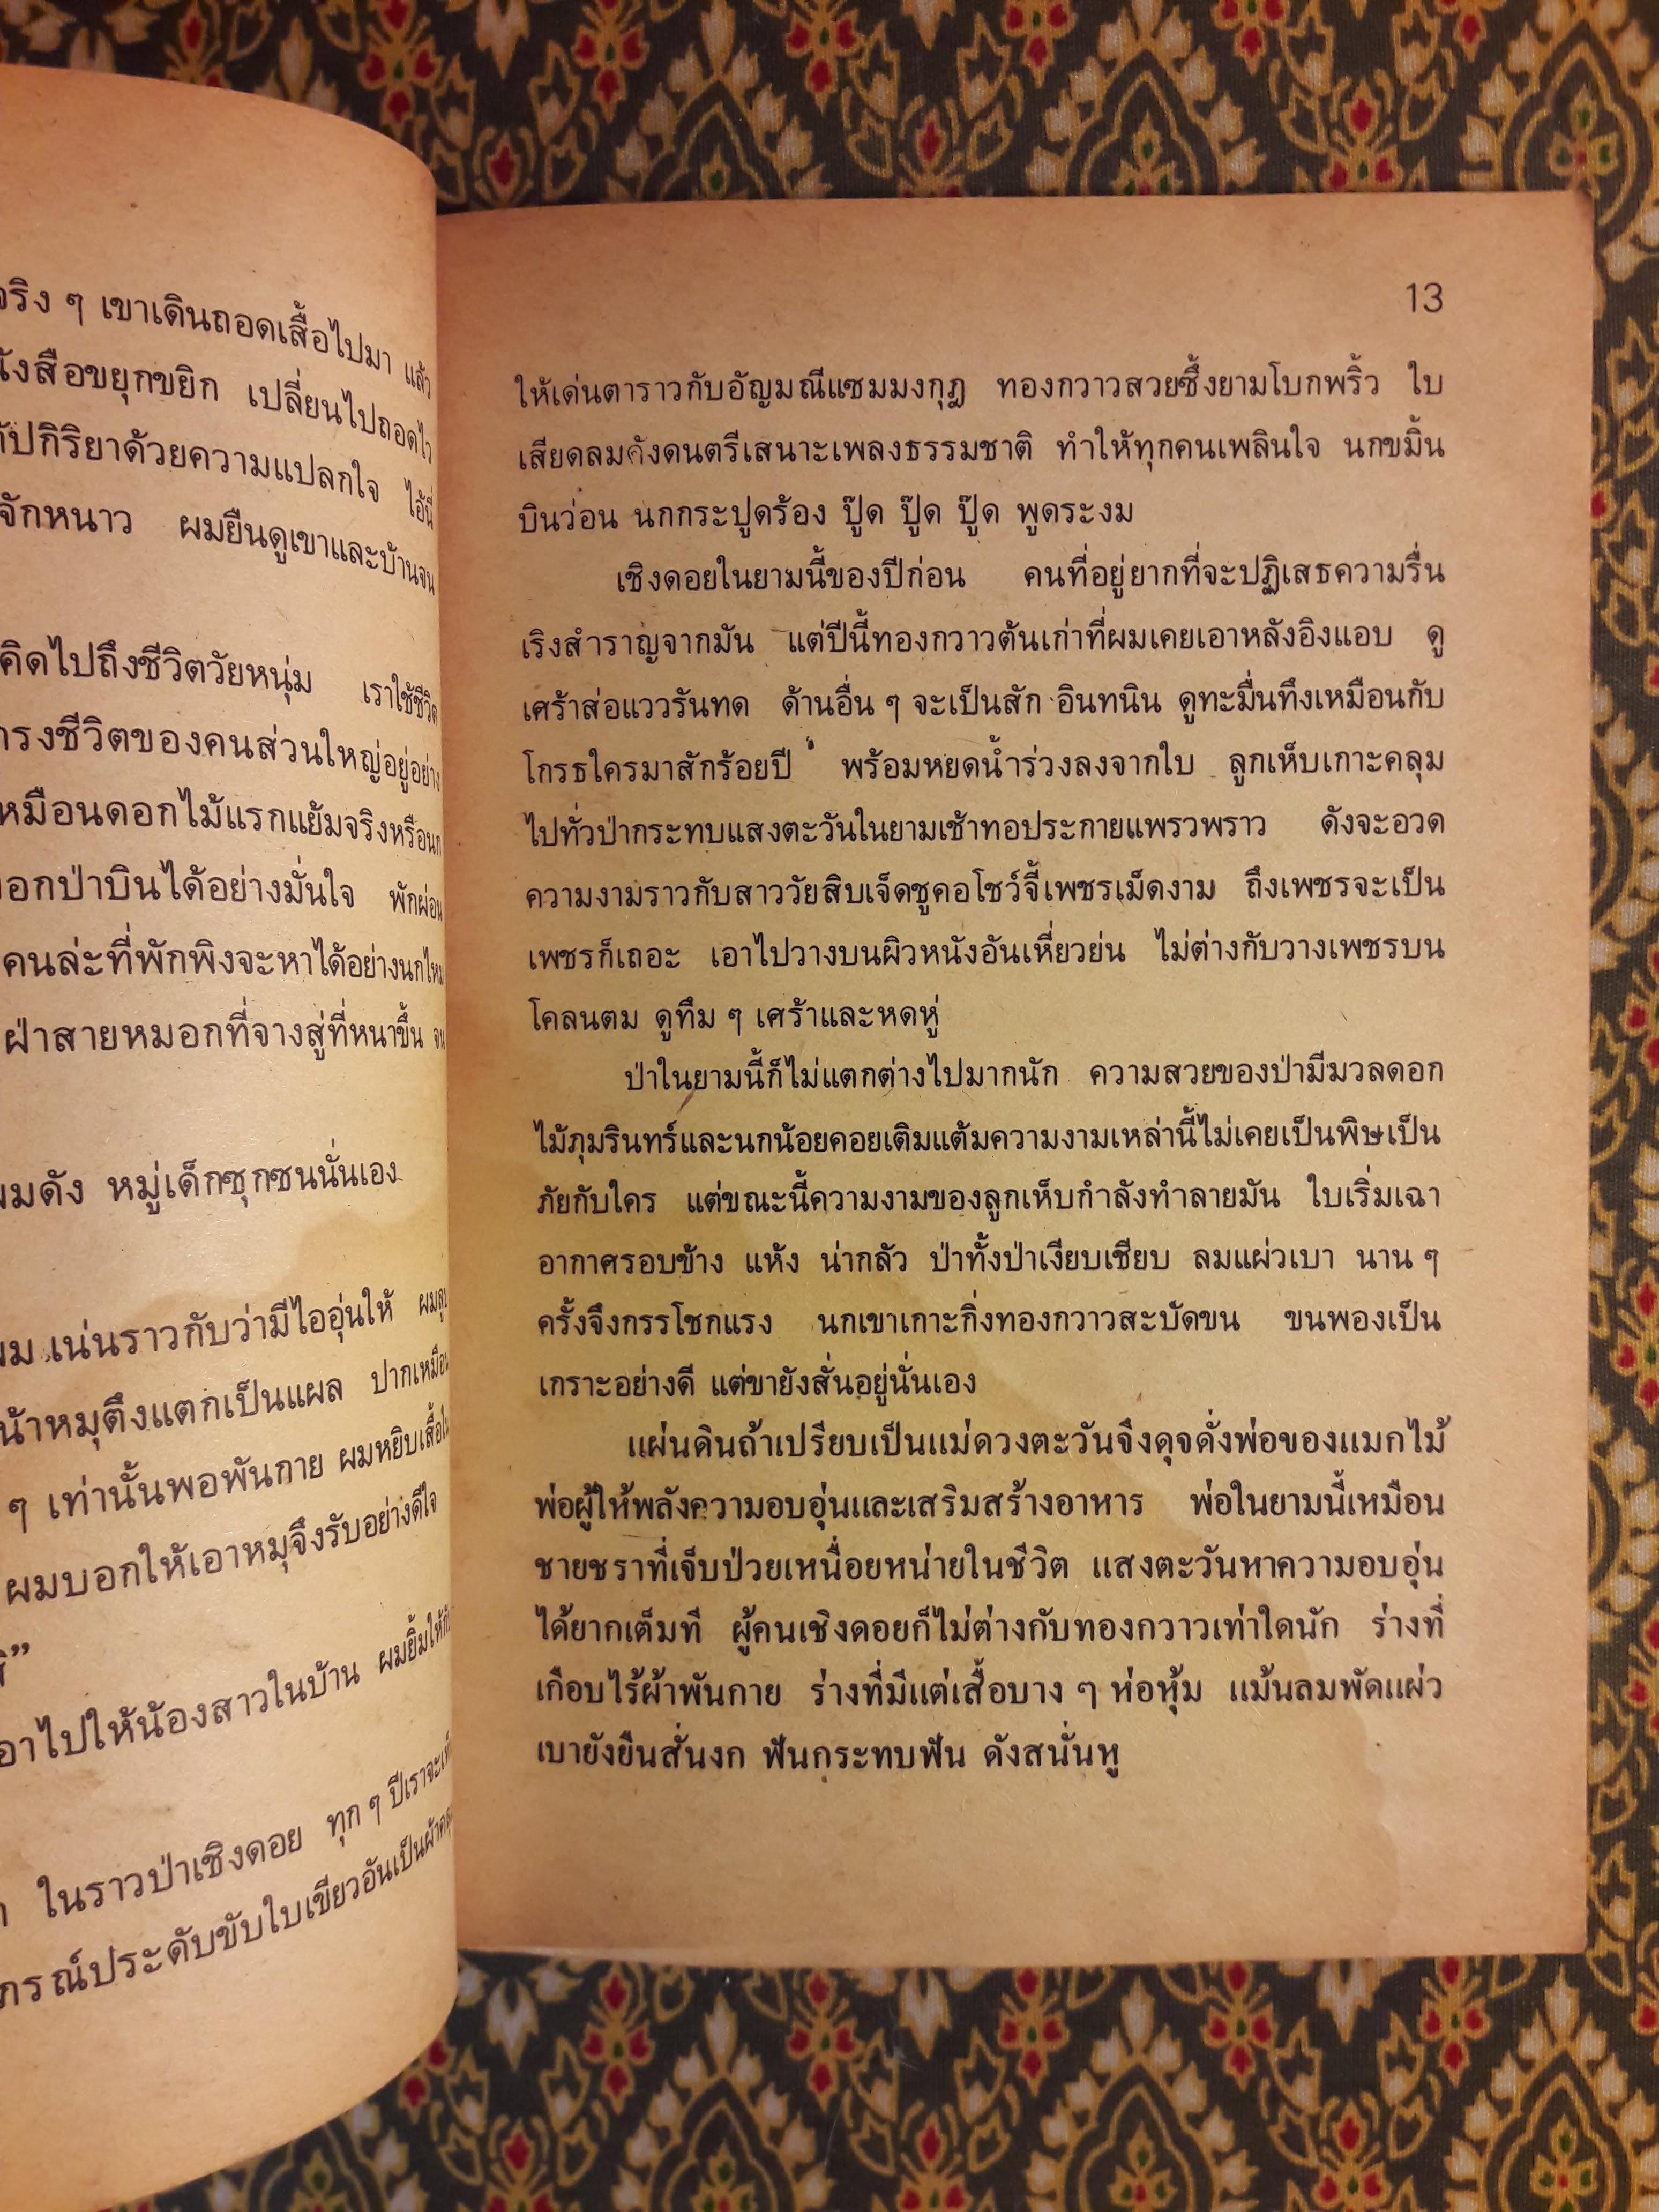 จริง ๆ เขาเดินถอดเสื้อไปมา แล้ว
ขยุกขยิก เปลี่ยนไปถอดไว
กิริยาด้วยความแปลกใจ ไอ้นี่
จักหนาว ผมยืนดูเขาและบ้านจน
คิดไปถึงชีวิตวัยหนุ่ม เราใช้ชีวิต
ชีวิตของคนส่วนใหญ่อยู่อย่าง
เหมือนดอกไม้แรกแย้มจริงหรือนก
ป่าบินได้อย่างมั่นใจ พักผ่อน
คนล่ะที่พักพิงจะหาได้อย่างนกไหม
ฝ่าสายหมอกที่จางสู่ที่หนาขึ้น จน
ดัง หมู่เด็กซุกซนนั่นเอง
เน่นราวกับว่ามีไออุ่นให้
หมุตึงแตกเป็นแผล ปากเหมือน
ๆ เท่านั้นพอพันกาย ผมหยิบเสื้อ
ผมบอกให้เอาหมุจึงรับอย่างดีใจ
เอาไปให้น้องสาวในบ้าน ผมยิ้มให้
ในราวป่าเชิงดอย ทุก ๆ ปีเราจะ
ประดับขับใบเขียวอันเป็น
13
ให้เด่นตาราวกับอัญมณีแซมมงกุฎ ทองกวาวสวยซึ้งยามโบกพริ้ว ใบ
เสียดลมดังดนตรีเสนาะเพลงธรรมชาติ ทำให้ทุกคนเพลินใจ นกขมิ้น
บินว่อน นกกระปูดร้อง ปู๊ด ปู๊ด ปู๊ด พูดระงม
เชิงดอยในยามนี้ของปีก่อน คนที่อยู่ยากที่จะปฏิเสธความรื่น
เริงสำราญจากมัน แต่ปีนี้ทองกวาวต้นเก่าที่ผมเคยเอาหลังอิงแอบ ดู
เศร้าส่อแววรันทด ด้านอื่น ๆ จะเป็นสัก อินทนิน ดูทะมื่นทึงเหมือนกับ
โกรธใครมาสักร้อยปี พร้อมหยดน้ำร่วงลงจากใบ ลูกเห็บเกาะคลุม
ไปทั่วป่ากระทบแสงตะวันในยามเช้าทอประกายแพรวพราว ดังจะอวด
ความงามราวกับสาววัยสิบเจ็ดชูคอโชว์จี้เพชรเม็ดงาม ถึงเพชรจะเป็น
เพชรก็เถอะ เอาไปวางบนผิวหนังอันเหี่ยวย่น ไม่ต่างกับวางเพชรบน
โคลนตม ดูทึม ๆ เศร้าและหดหู่
ป่าในยามนี้ก็ไม่แตกต่างไปมากนัก ความสวยของป่ามีมวลดอก
ไม้ภุมรินทร์และนกน้อยคอยเติมแต้มความงามเหล่านี้ไม่เคยเป็นพิษเป็น
ภัยกับใคร แต่ขณะนี้ความงามของลูกเห็บกำลังทำลายมัน ใบเริ่มเฉา
อากาศรอบข้าง แห้ง น่ากลัว ป่าทั้งป่าเงียบเชียบ ลมแผ่วเบา นาน ๆ
ครั้งจึงกรรโชกแรง นกเขาเกาะกิ่งทองกวาวสะบัดขน ขนพองเป็น
เกราะอย่างดี แต่ขายังสั่นอยู่นั่นเอง
แผ่นดินถ้าเปรียบเป็นแม่ดวงตะวันจึงดุจดั่งพ่อของแมกไม้
พ่อผู้ให้พลังความอบอุ่นและเสริมสร้างอาหาร พ่อในยามนี้เหมือน
ชายชราที่เจ็บป่วยเหนื่อยหน่ายในชีวิต แสงตะวันหาความอบอุ่น
ได้ยากเต็มที ผู้คนเชิงดอยก็ไม่ต่างกับทองกวาวเท่าใดนัก ร่างที่
เกือบไร้ผ้าพันกาย ร่างที่มีแต่เสื้อบาง ๆ ห่อหุ้ม แม้นลมพัดแผ่ว
เบายังยืนสั่นงก ฟันกระทบฟัน ดังสนั่นหู